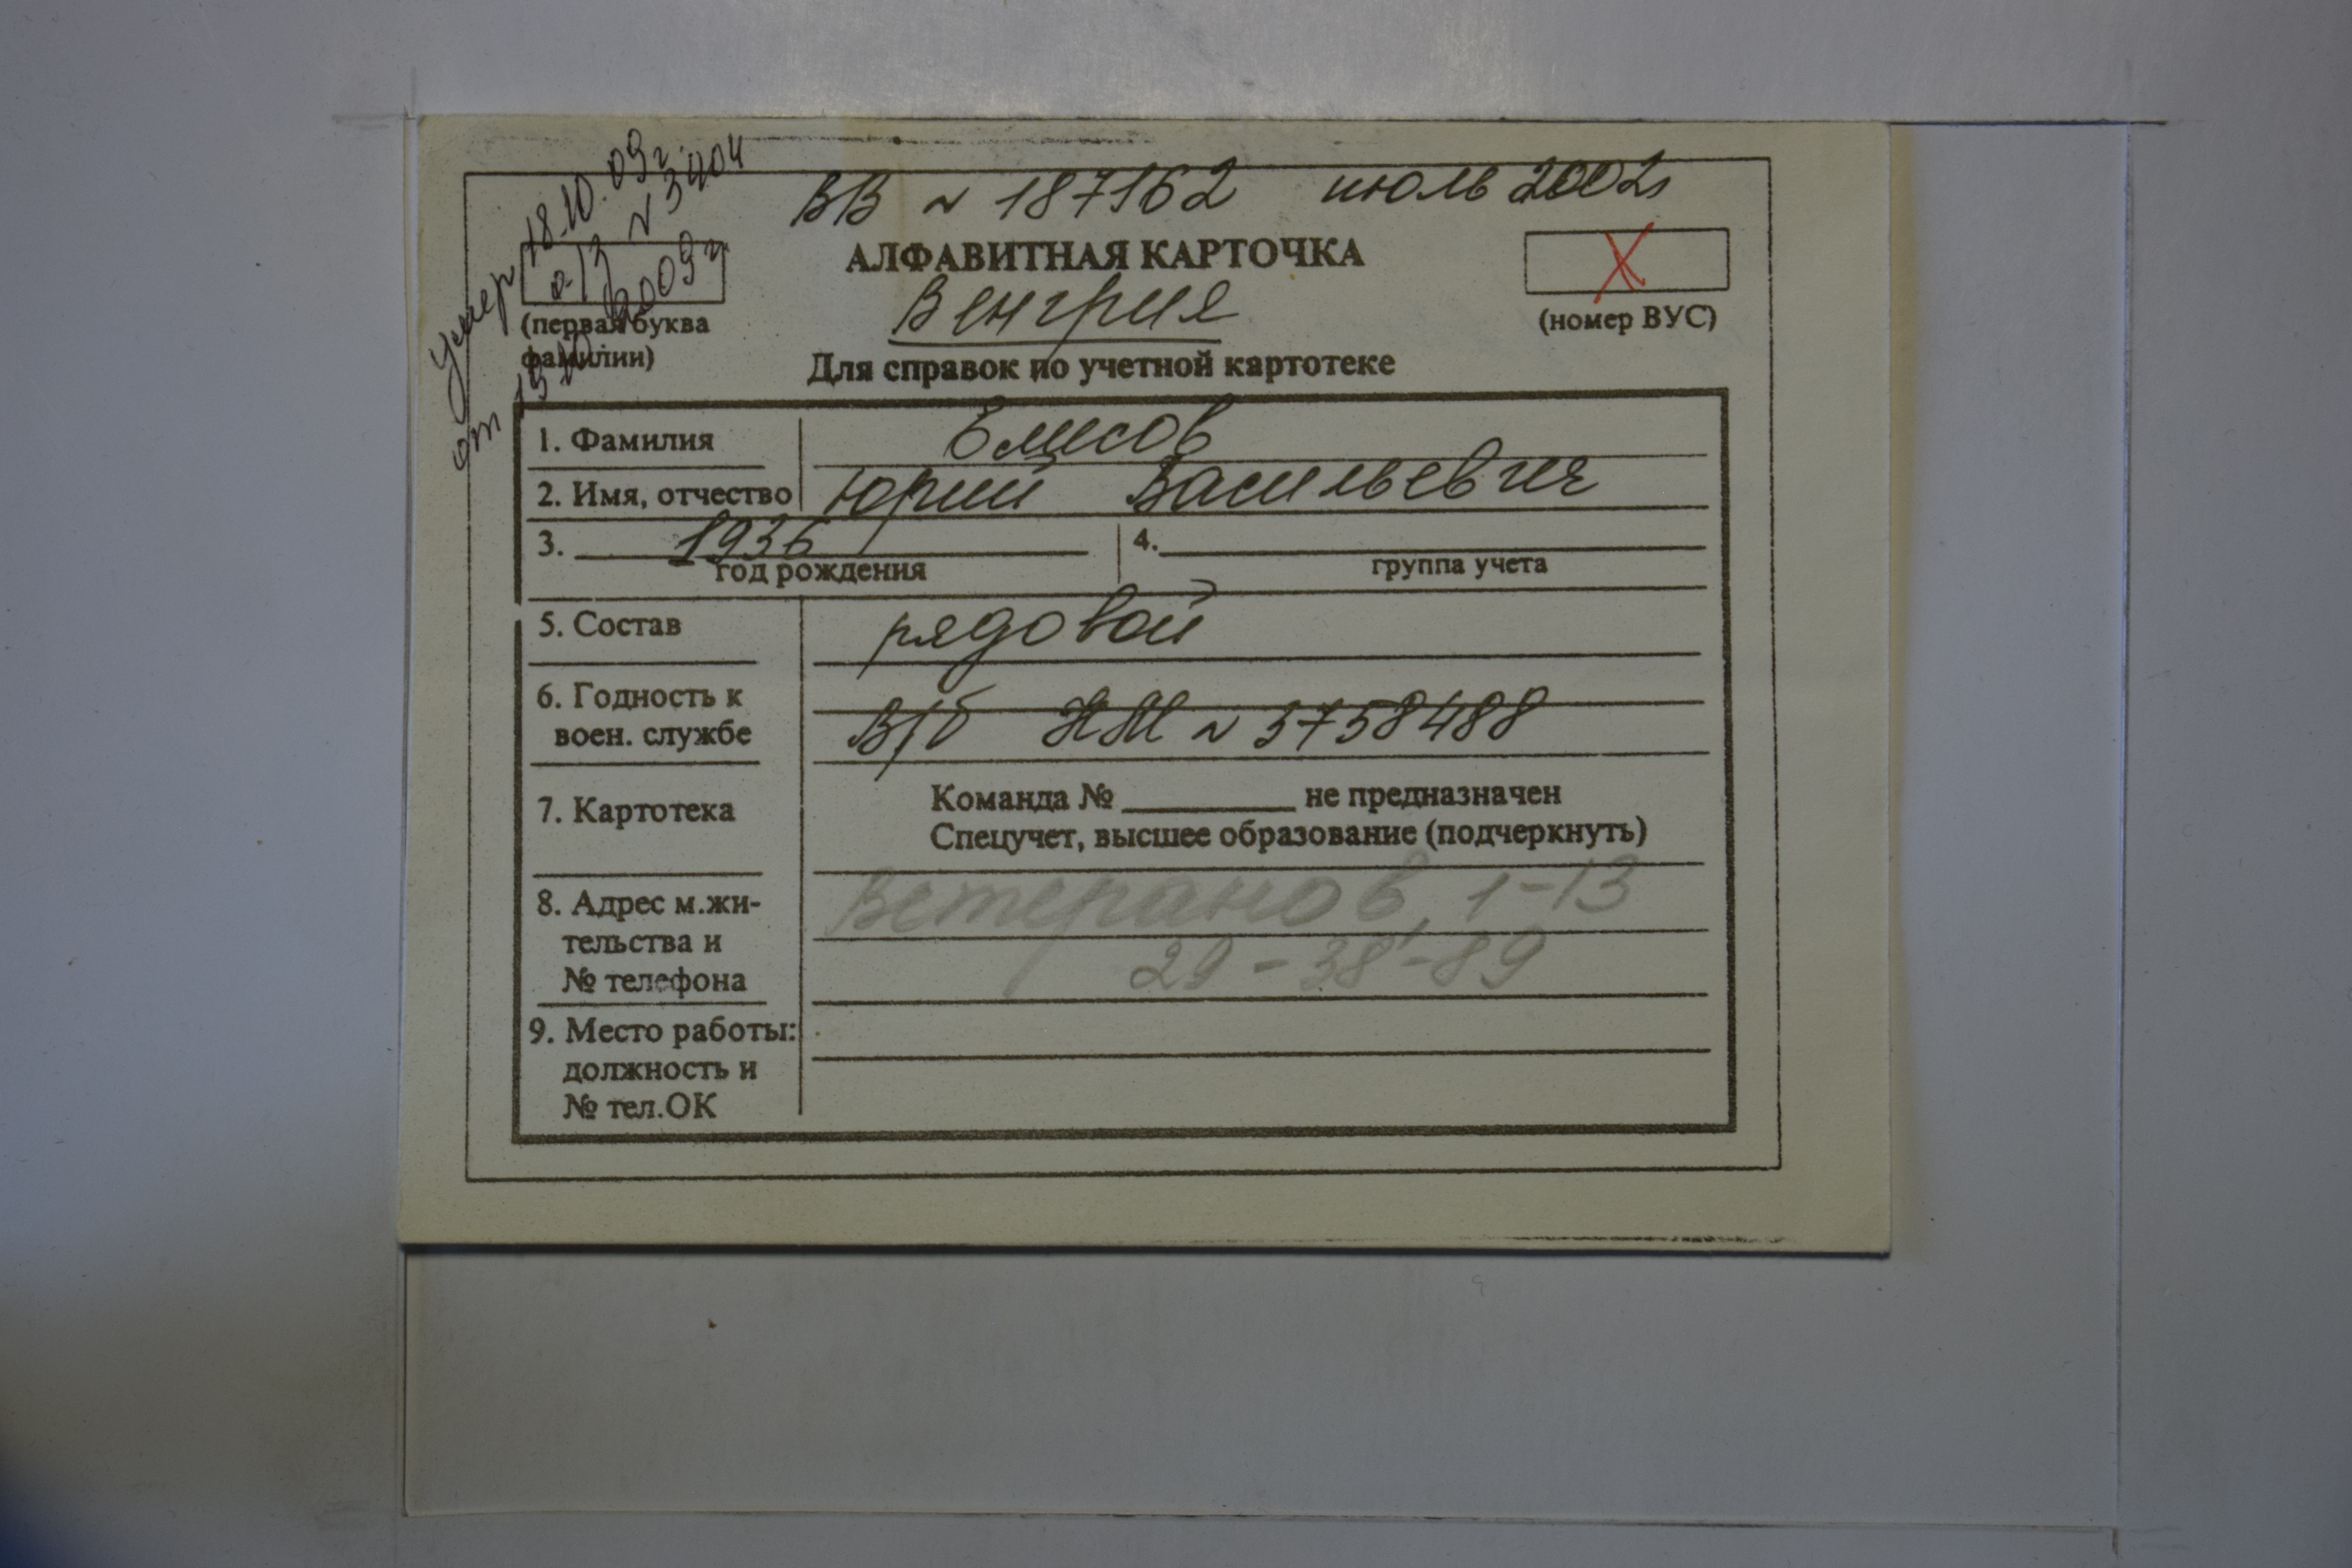 умер 18.10.09г.
а/з N 3404
от 19.10.2009г.
ВВ N 187162 июль 2002г
АЛФАВИТНАЯ КАРТОЧКА
Х
Венгрия
(первая буква
фамилии)
(номер ВУС)
Для справок по учетной картотеке
1. Фамилия Елисов
2. Имя, отчество Юрий Васильевич
3. 1936 4.
год рождения группа учета
5. Состав рядовой
6. Годность к
воен. службе В/б НМ N 3758488
7. Картотека Команда № ________ не предназначен
Спецучет, высшее образование (подчеркнуть)
8. Адрес м.жи- Ветеранов, 1-13
тельства и
№ телефона 29-38-89
9. Место работы:
должность и
№ тел.ОК